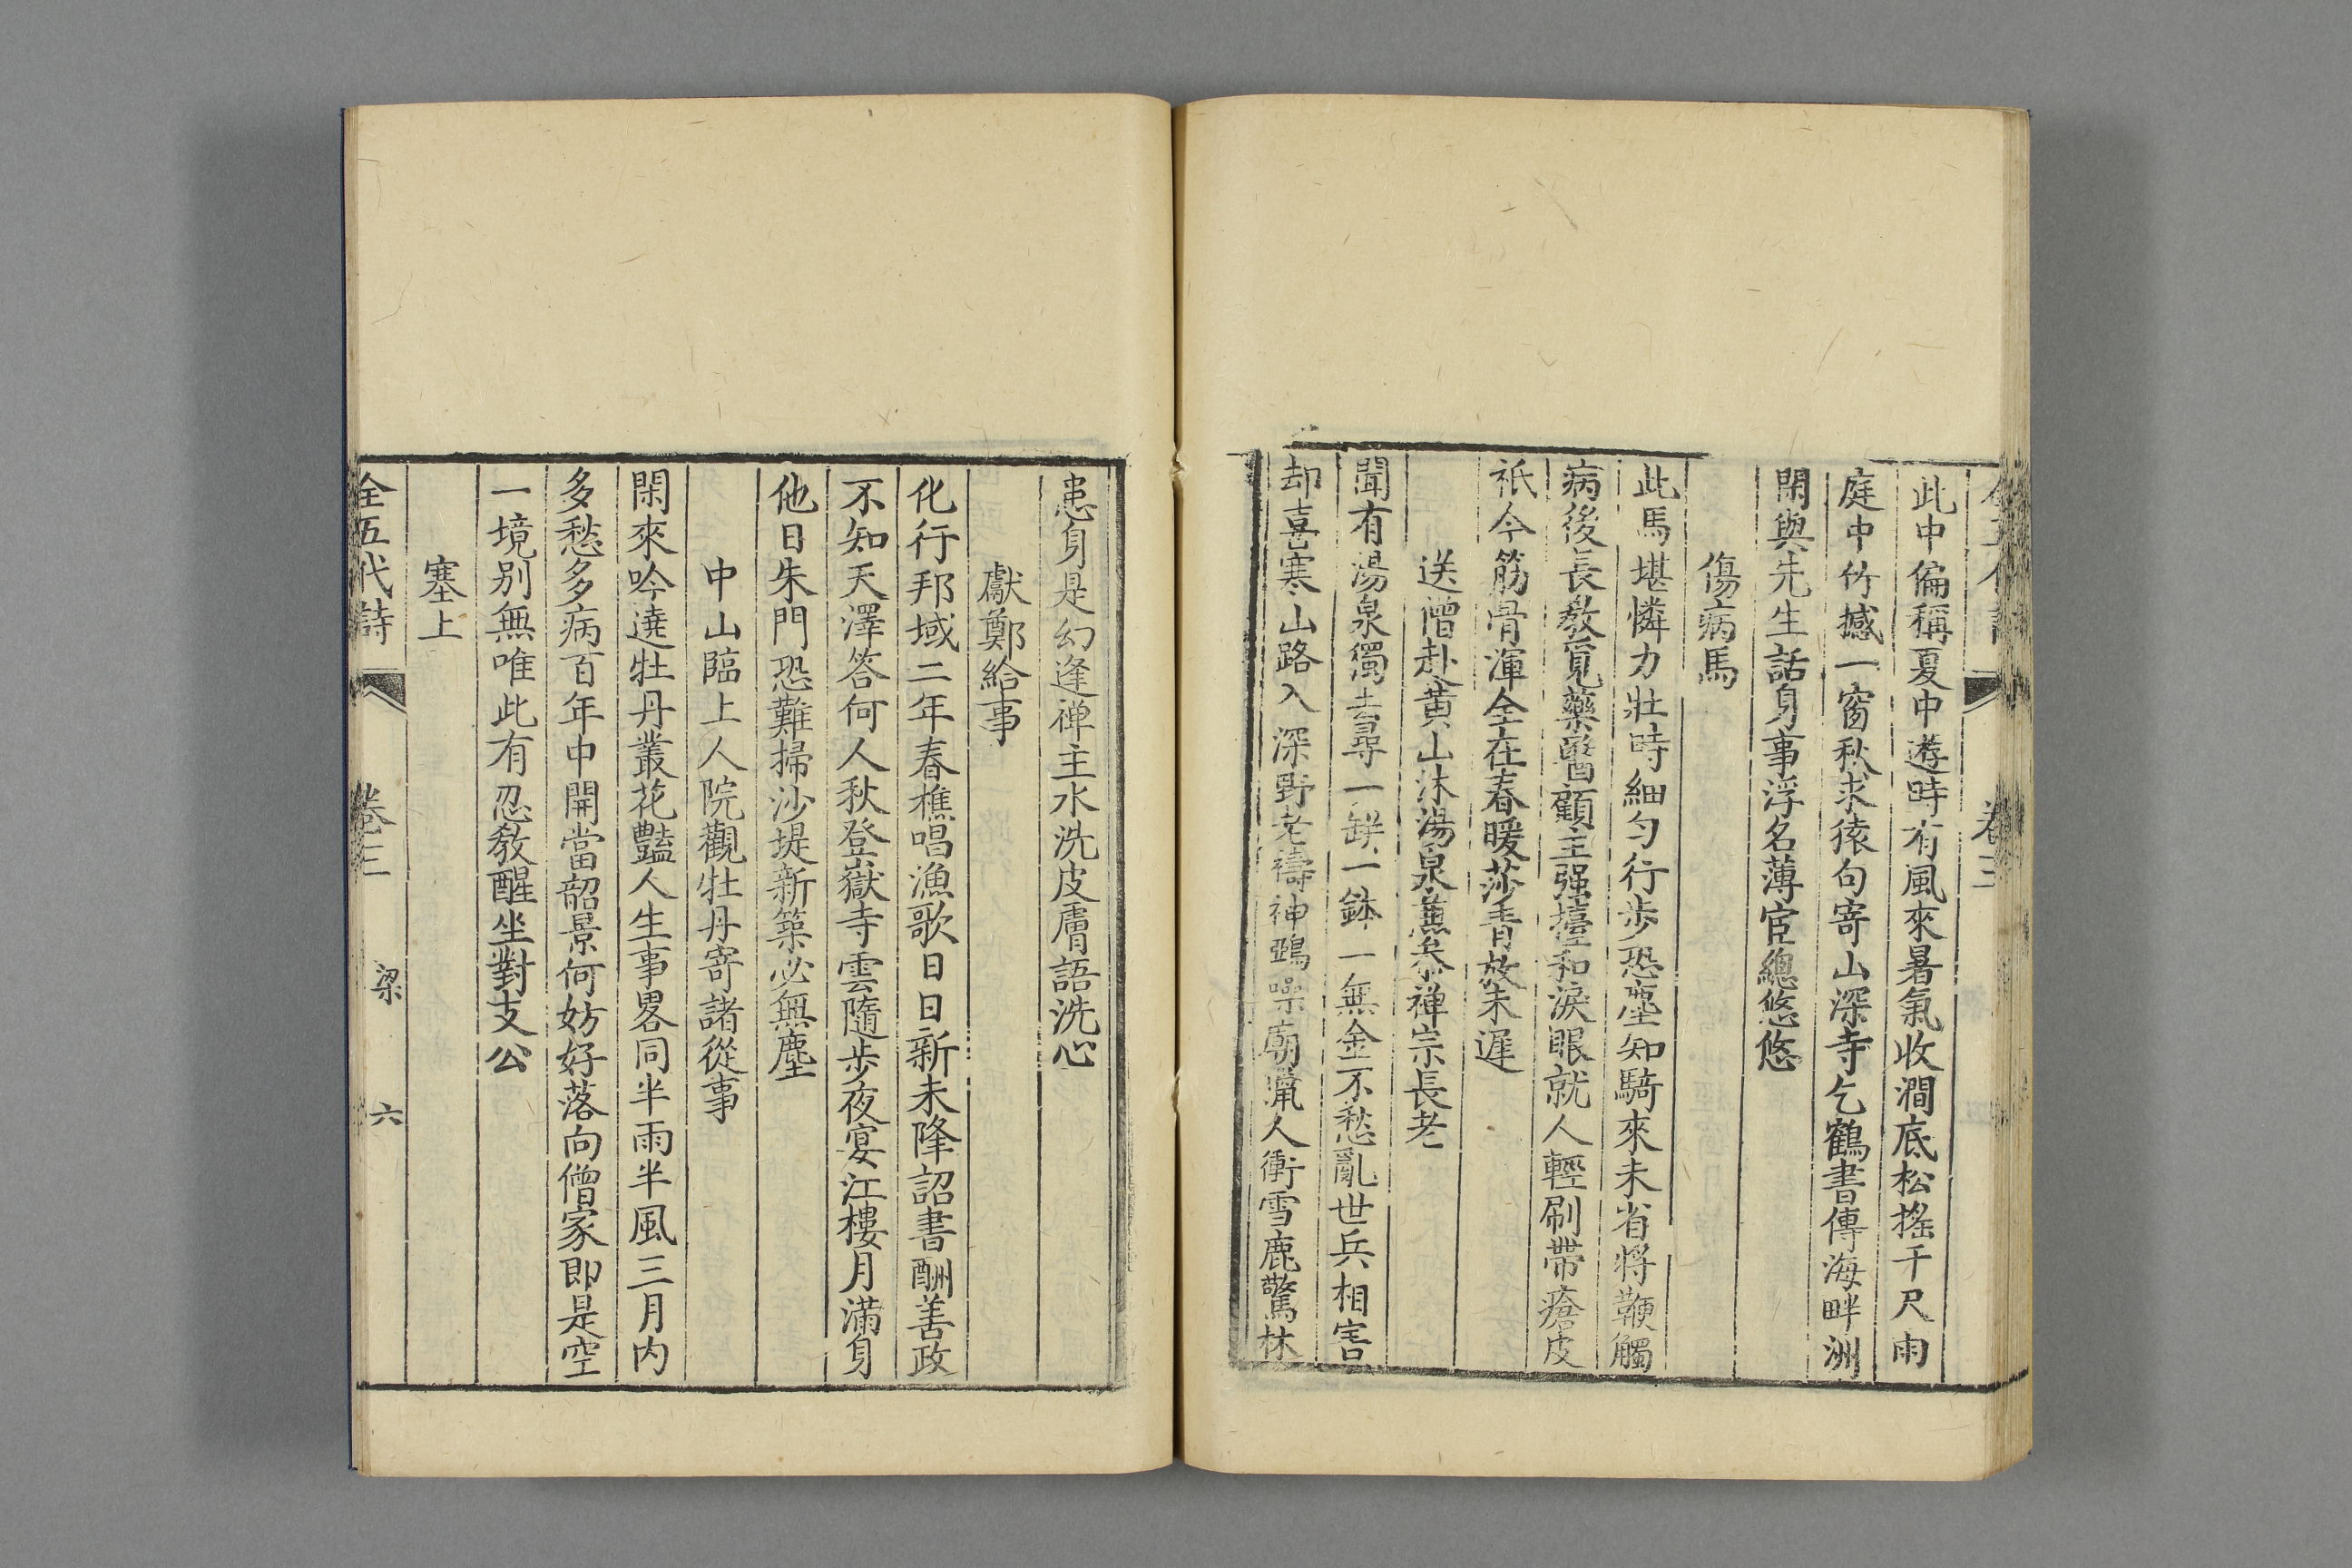 此中偏稱夏中遊時有風來暑氣收澗底松搖千尺雨
庭中竹撼一窗秋求猿句寄山深寺乞鶴書傳海畔洲
閑與先生話身事浮名薄宦總悠悠
傷病馬
此馬堪憐力壯時細勻行步恐塵知騎來未省將鞭觸
病後長教覓藥醫顧主强擡和淚眼就人輕刷帶瘡皮
祇今筋骨渾全在春暖莎青放未遲
送僧赴黄山沐湯泉兼叅禅宗長老
聞有湯泉獨去尋一缾一鉢一無金不愁亂世兵相害
却喜寒山路入深野老禱神鴉噪廟獵人衝雪鹿驚林
患身是幻逢禅主水洗皮膚語洗心
獻鄭給事
化行邦域二年春樵唱漁歌日日新未降詔書酬善政
不知天澤答何人秋登嶽寺雲隨步夜宴江樓月滿身
他日朱門恐難掃沙堤新築必無塵
中山臨上人院觀牡丹寄諸從事
閑來吟遶牡丹叢花豔人生事畧同半雨半風三月内
多愁多病百年中開當韶景何妨好落向僧家即是空
一境别無唯此有忍教醒坐對支公
塞上
全五代詩 卷三 梁 六